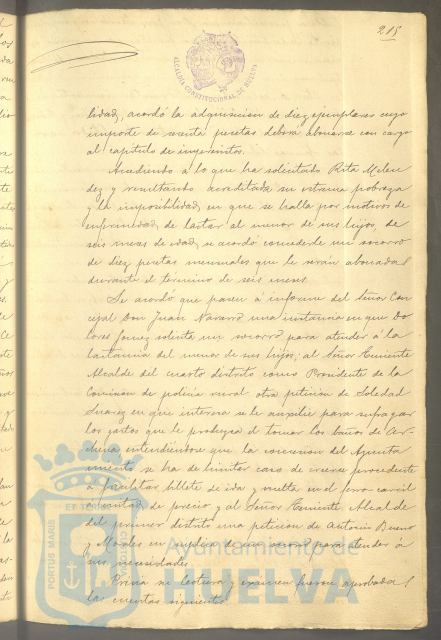 215
ALCALDIA CONSTITUCIONAL DE HUELVA
lidad, acordó la adquisicion de diez ejemplares cuyo
importe de pesetas deberá abonarse con cargo
al capitulo de imprevistos.
Accediendo á lo que ha solicitado Rita Melen
dez y resultando acreditada su estrema pobreza
y la imposibilidad en que se halla por motivos de
enfermedad, de lactar al menor de sus hijos, de
seis meses de edad, se acordó concederle un socorro
de diez pesetas mensuales que le serán abonadas
durante el término de seis meses.
Se acordó que pasen á informe del Señor Con
cejal Don Juan Navarro una instancia en que Do
lores Gomez solicita un socorro para atender á la
lactancia del menor de sus hijos; al Señor Teniente
Alcalde del cuarto distrito como Presidente de la
Comision de policia rural otra peticion de Soledad
Suarez en que interesa se le auxilie para sufragar
los gastos que le produzca el tomar los baños de Ar-
chena entendiendose que la concesion del Ayunta
miento se ha de limitar caso de creerse procedente
á facilitar billete de ida y vuelta en el ferro-carril
de precio y al Señor Teniente Alcalde
del primer distrito una peticion de Antonio Bueno
y Morales en súplica de un socorro para atender á
sus necesidades.
Prévia su lectura y examen fueron aprobadas
las cuentas siguientes
PORTUS MARIS ET TERRAE CUSTODIA
Ayuntamiento de
HUELVA